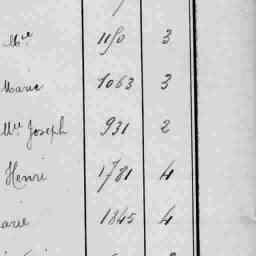 Mie 1190 3
Marie 1063 3
Mie Joseph 931 2
Henri 1781 4
arie 1845 4